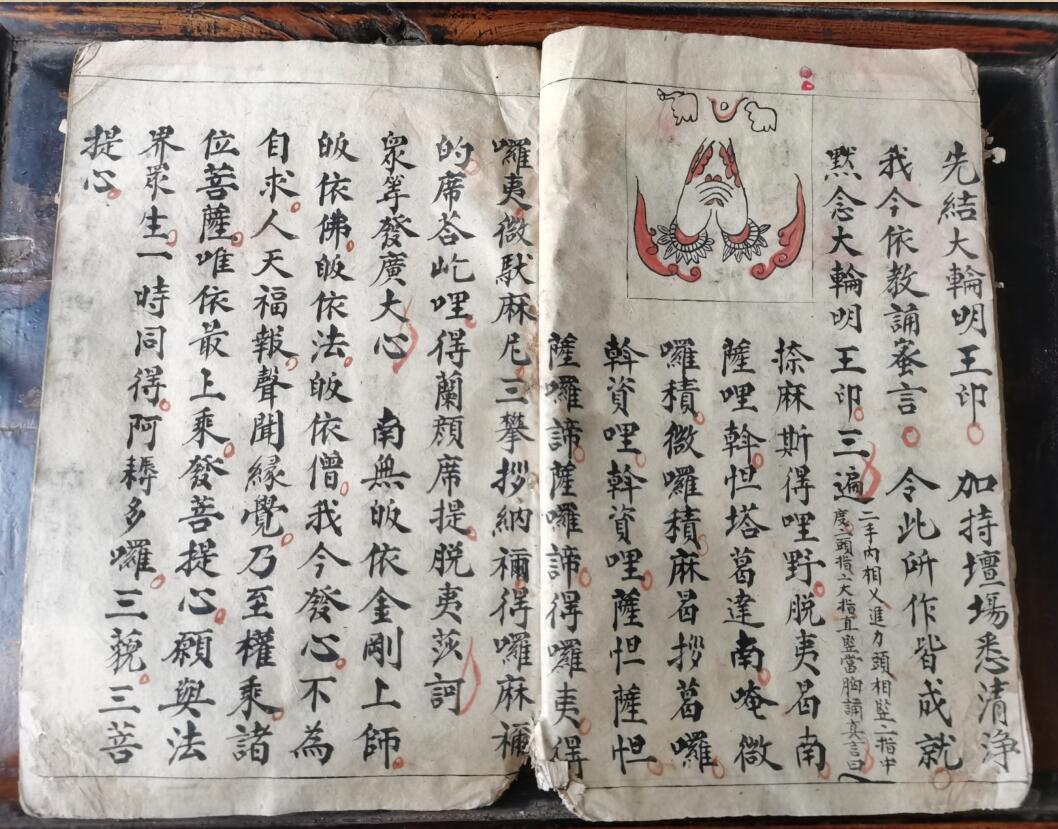 先結大輪明王印 加持壇塲悉清淨
我今依教誦蜜言 令此所作皆成就
默念大輪明王印三遍
二手內相叉進力頭相竪二指中
度二頭指二大指直竪當胸誦真言曰
捺麻斯得哩野脱夷曷南
薩哩斡怛塔葛達南唵微
囉積微囉積麻曷拶葛囉
斡資哩斡資哩薩怛薩怛
薩囉諦薩囉諦得囉夷得
囉夷微馱麻尼三攀拶納禰得囉麻禰
的席荅屹哩得蘭顔席提脱夷莎訶
眾等發廣大心 南無皈依金剛上師
皈依佛皈依法皈依僧我今發心不為
自求人天福報聲聞緣覺乃至權乘諸
位菩薩唯依最上乘發菩提心願與法
界眾生一時同得阿耨多囉三藐三菩
提心